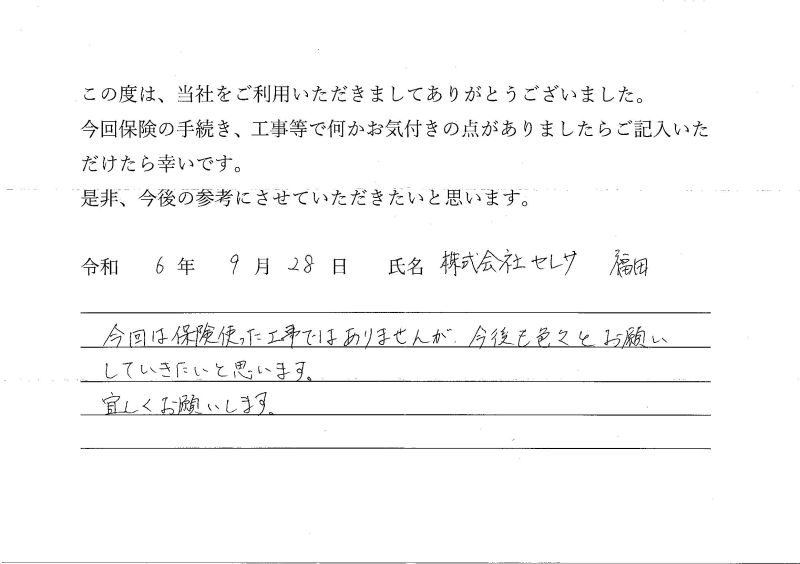 この度は、当社をご利用いただきましてありがとうございました。
今回保険の手続き、工事等で何かお気付きの点がありましたらご記入いた
だけたら幸いです。
是非、今後の参考にさせていただきたいと思います。
令和 6 年 9 月 28 日 氏名 株式会社セレサ 福田
今回は保険使った工事ではありませんが、今後も色々とお願い
していきたいと思います。
宜しくお願いします。